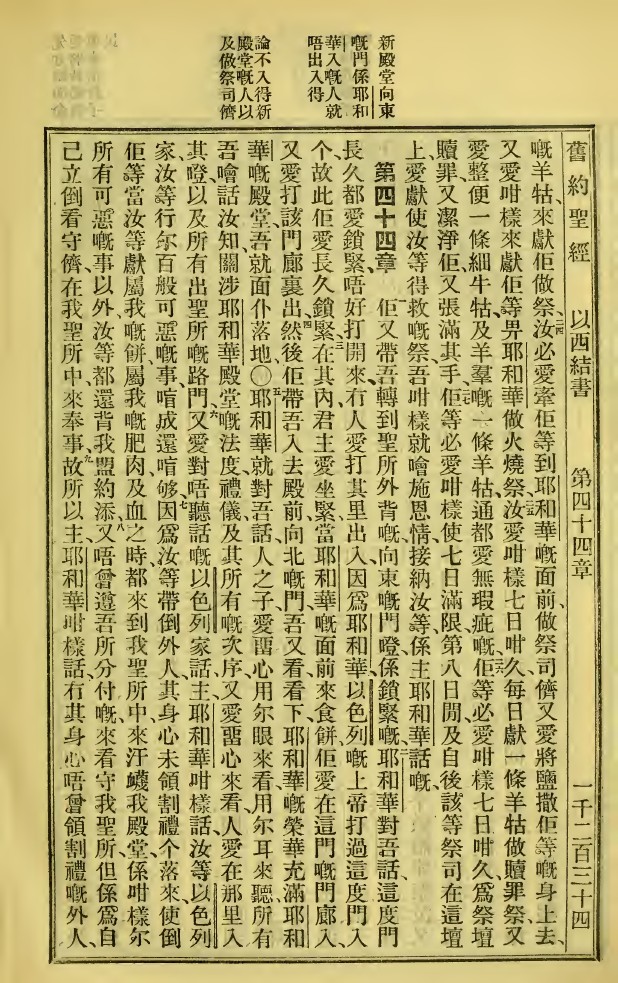 新殿堂向東
嘅門係耶和
華入嘅人就
唔出入得
論不入得新
殿堂嘅人以
及做祭司儕
舊約聖經 以西結書 第四十四章 一千二百三十四
嘅羊牯、來獻佢做祭、汝必愛牽佢等到耶和華嘅面前、做祭司儕又愛將鹽撒佢等嘅身上去、
又愛咁樣來獻佢等畀耶和華做火燒祭、汝愛咁樣七日咁久、每日獻一條羊牯做贖罪祭、又
愛整便一條細牛牯、及羊羣嘅一條羊牯、通都愛無瑕疵嘅、佢等必愛咁樣七日咁久、爲祭壇
贖罪、又潔淨佢、又張滿其手、佢等必愛咁樣使七日滿限、第八日閒及自後、該等祭司在這壇
上、愛獻使汝等得救嘅祭、吾咁樣就噲施恩情接納汝等、係主耶和華話嘅、
第四十四章 佢又帶吾轉到聖所外背嘅、向東嘅門、嶝係鎖緊嘅、耶和華對吾話、這度門
長久都愛鎖緊、唔好打開來、冇人愛打其里出入、因爲耶和華以色列嘅上帝打過這度門入、
个、故此佢愛長久鎖緊、在其內君主愛坐緊當耶和華嘅面前來食餅、佢愛在這門嘅門廊入、
又愛打該門廊裏出、然後佢帶吾入去殿前向北嘅門、吾又看看下、耶和華嘅榮華充滿耶和
華嘅殿堂、吾就面仆落地、〇耶和華就對吾話、人之子、愛畱心用尔眼來看、用尔耳來聽、所有
吾噲話汝知、關涉耶和華殿堂嘅法度禮儀、及其所有嘅次序、又愛畱心來看、人愛在那里入
其嶝、以及所有出聖所嘅路門、又愛對唔聽話嘅以色列家話、主耶和華咁樣話、汝等以色列
家、汝等行尔百般可惡嘅事、喑成還喑够、因爲汝等帶倒外人、其身心未領割禮个落來、使倒
佢等當汝等獻屬我嘅餅、屬我嘅肥肉及血之時、都來到我聖所中、來汙衊我殿堂、係咁樣、尔
所有可惡嘅事以外、汝等都還背我盟約添、又唔曾遵吾所分付嘅、來看守我聖所、但係爲自
己立倒看守儕、在我聖所中來奉事、故所以主耶和華咁樣話、冇其身心唔曾領割禮嘅外人、